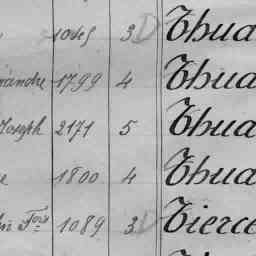 1045 3 D Thua
nandre 1799 4 Thua
Joseph 2171 5 Thua
e 1800 4 Thua
Fois 1089 3 D Tierce